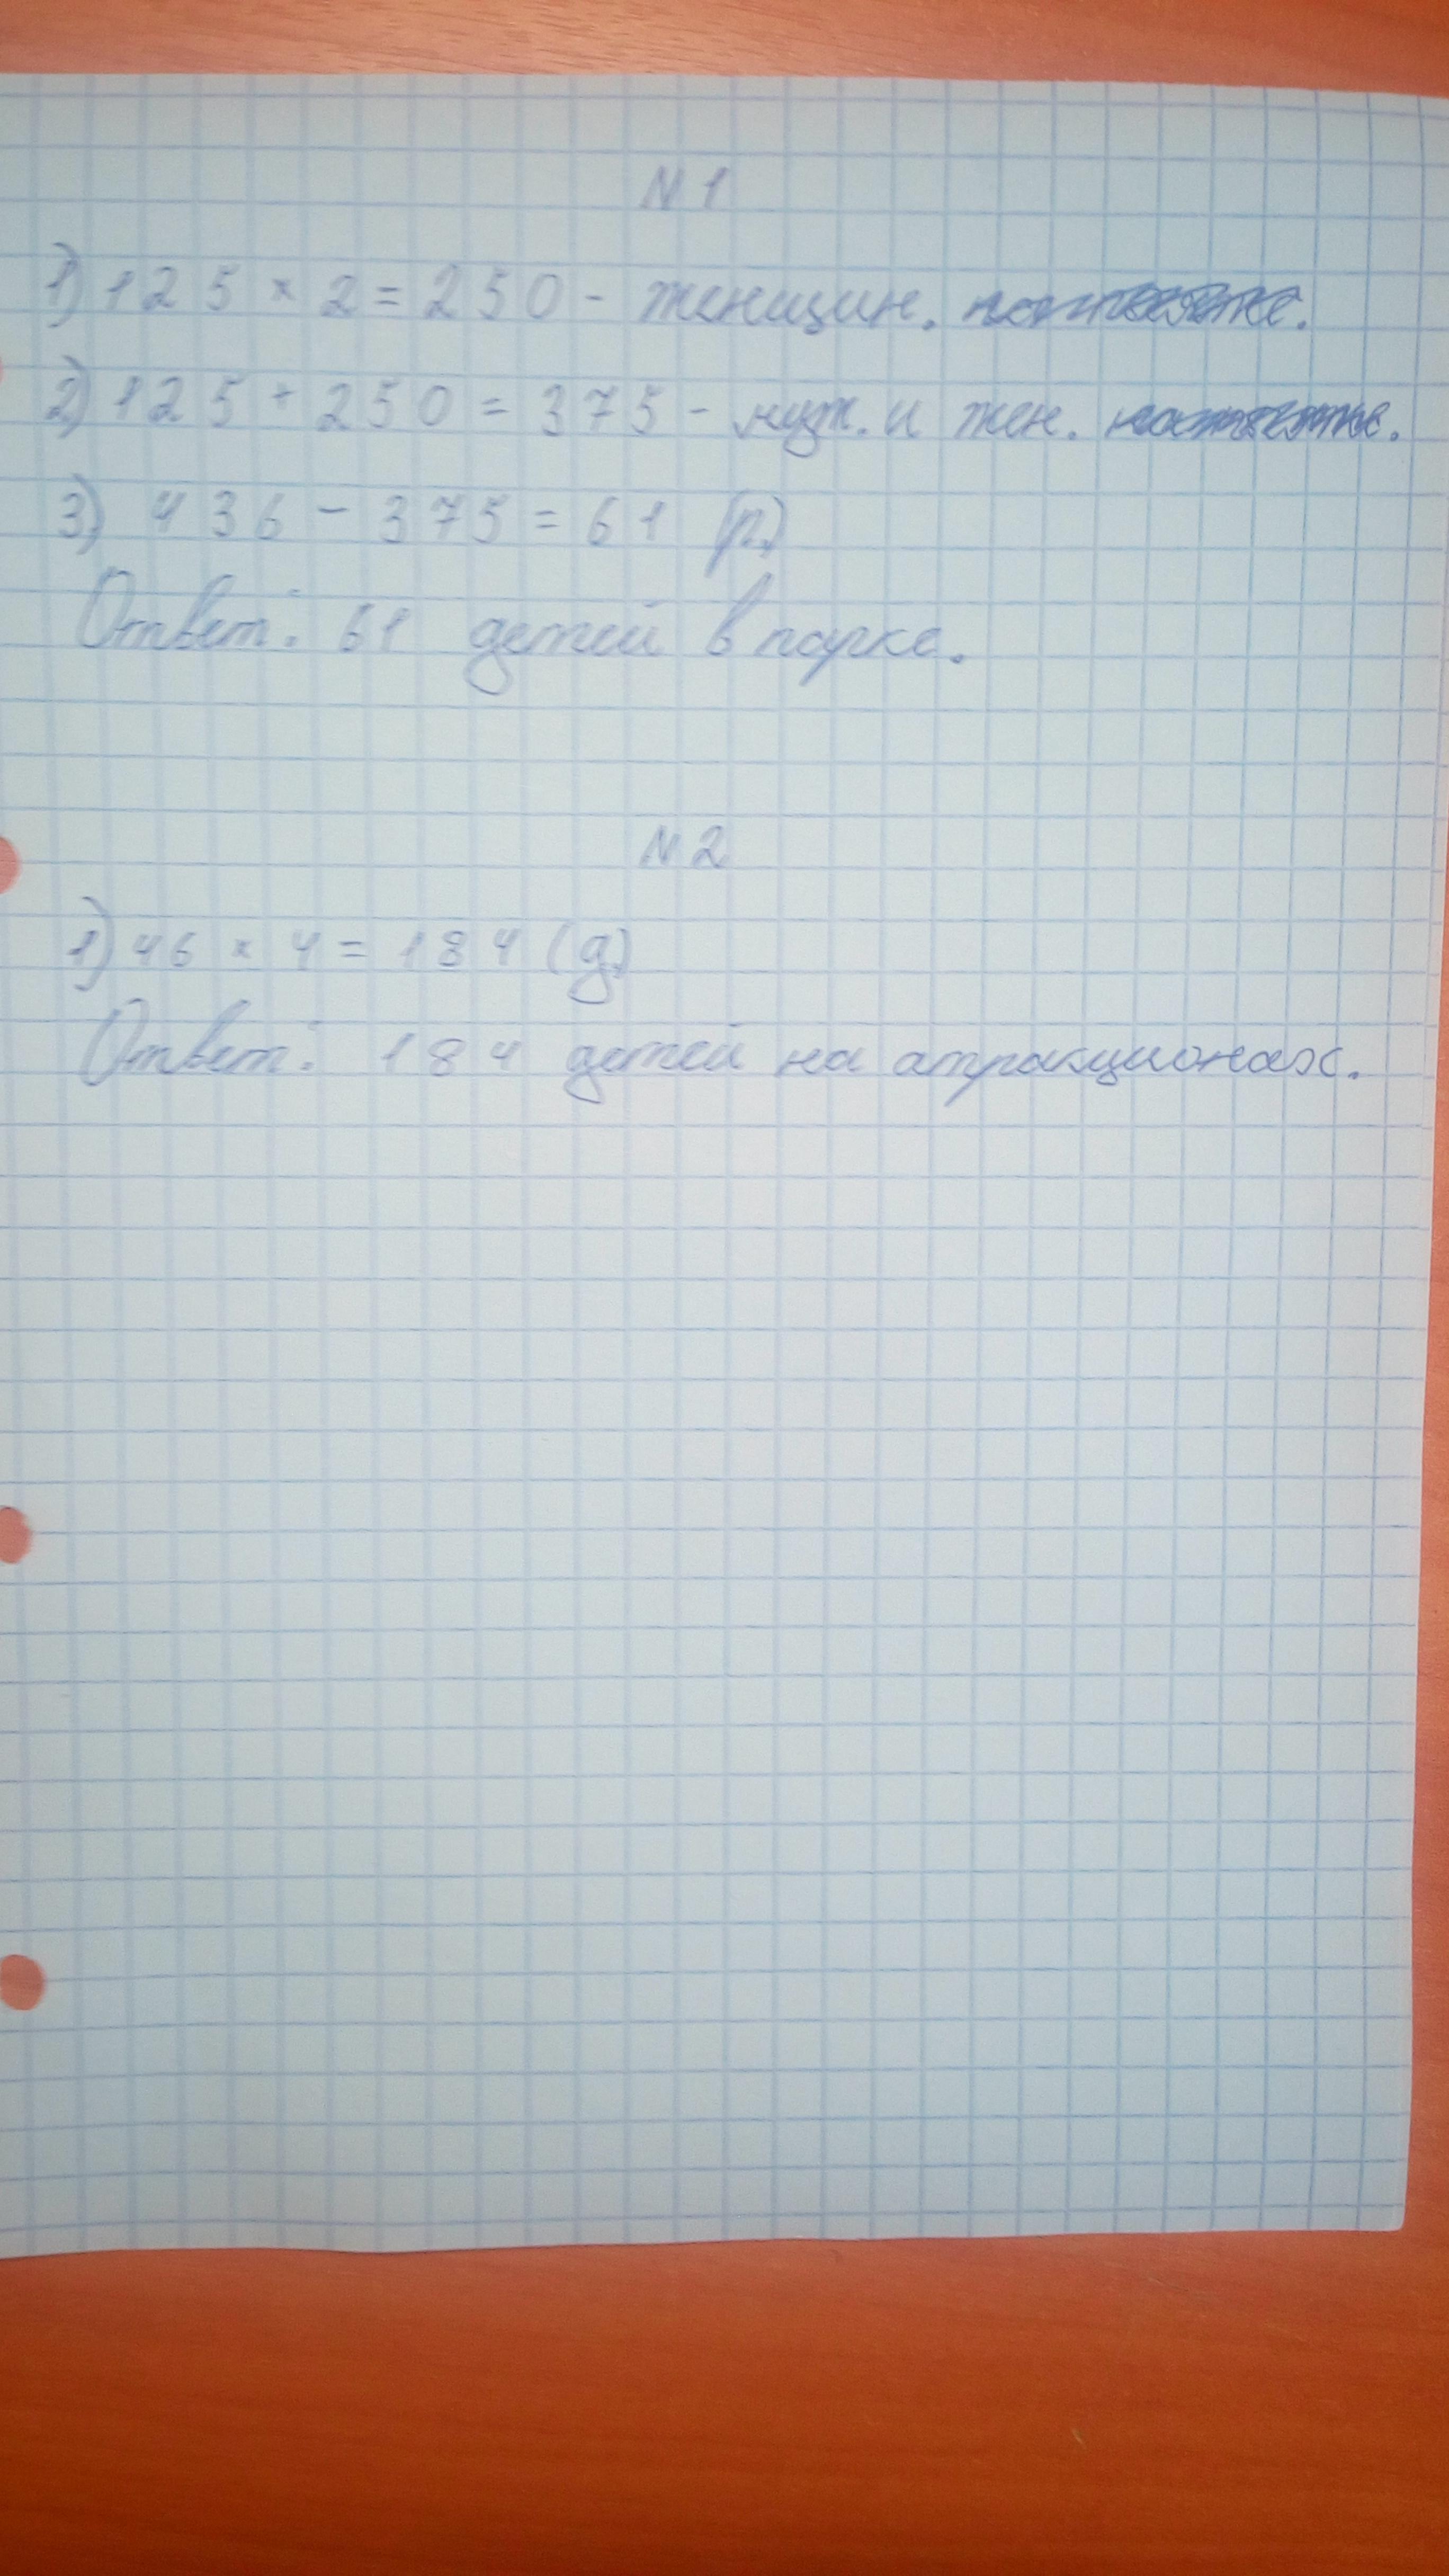 N 1
1) 125 × 2 = 250 - женщин.
2) 125 + 250 = 375 - муж. и жен.
3) 436 - 375 = 61 (р.)
Ответ: 61 детей в парке.
N 2
1) 46 × 4 = 184 (д)
Ответ: 184 детей на атракционах.